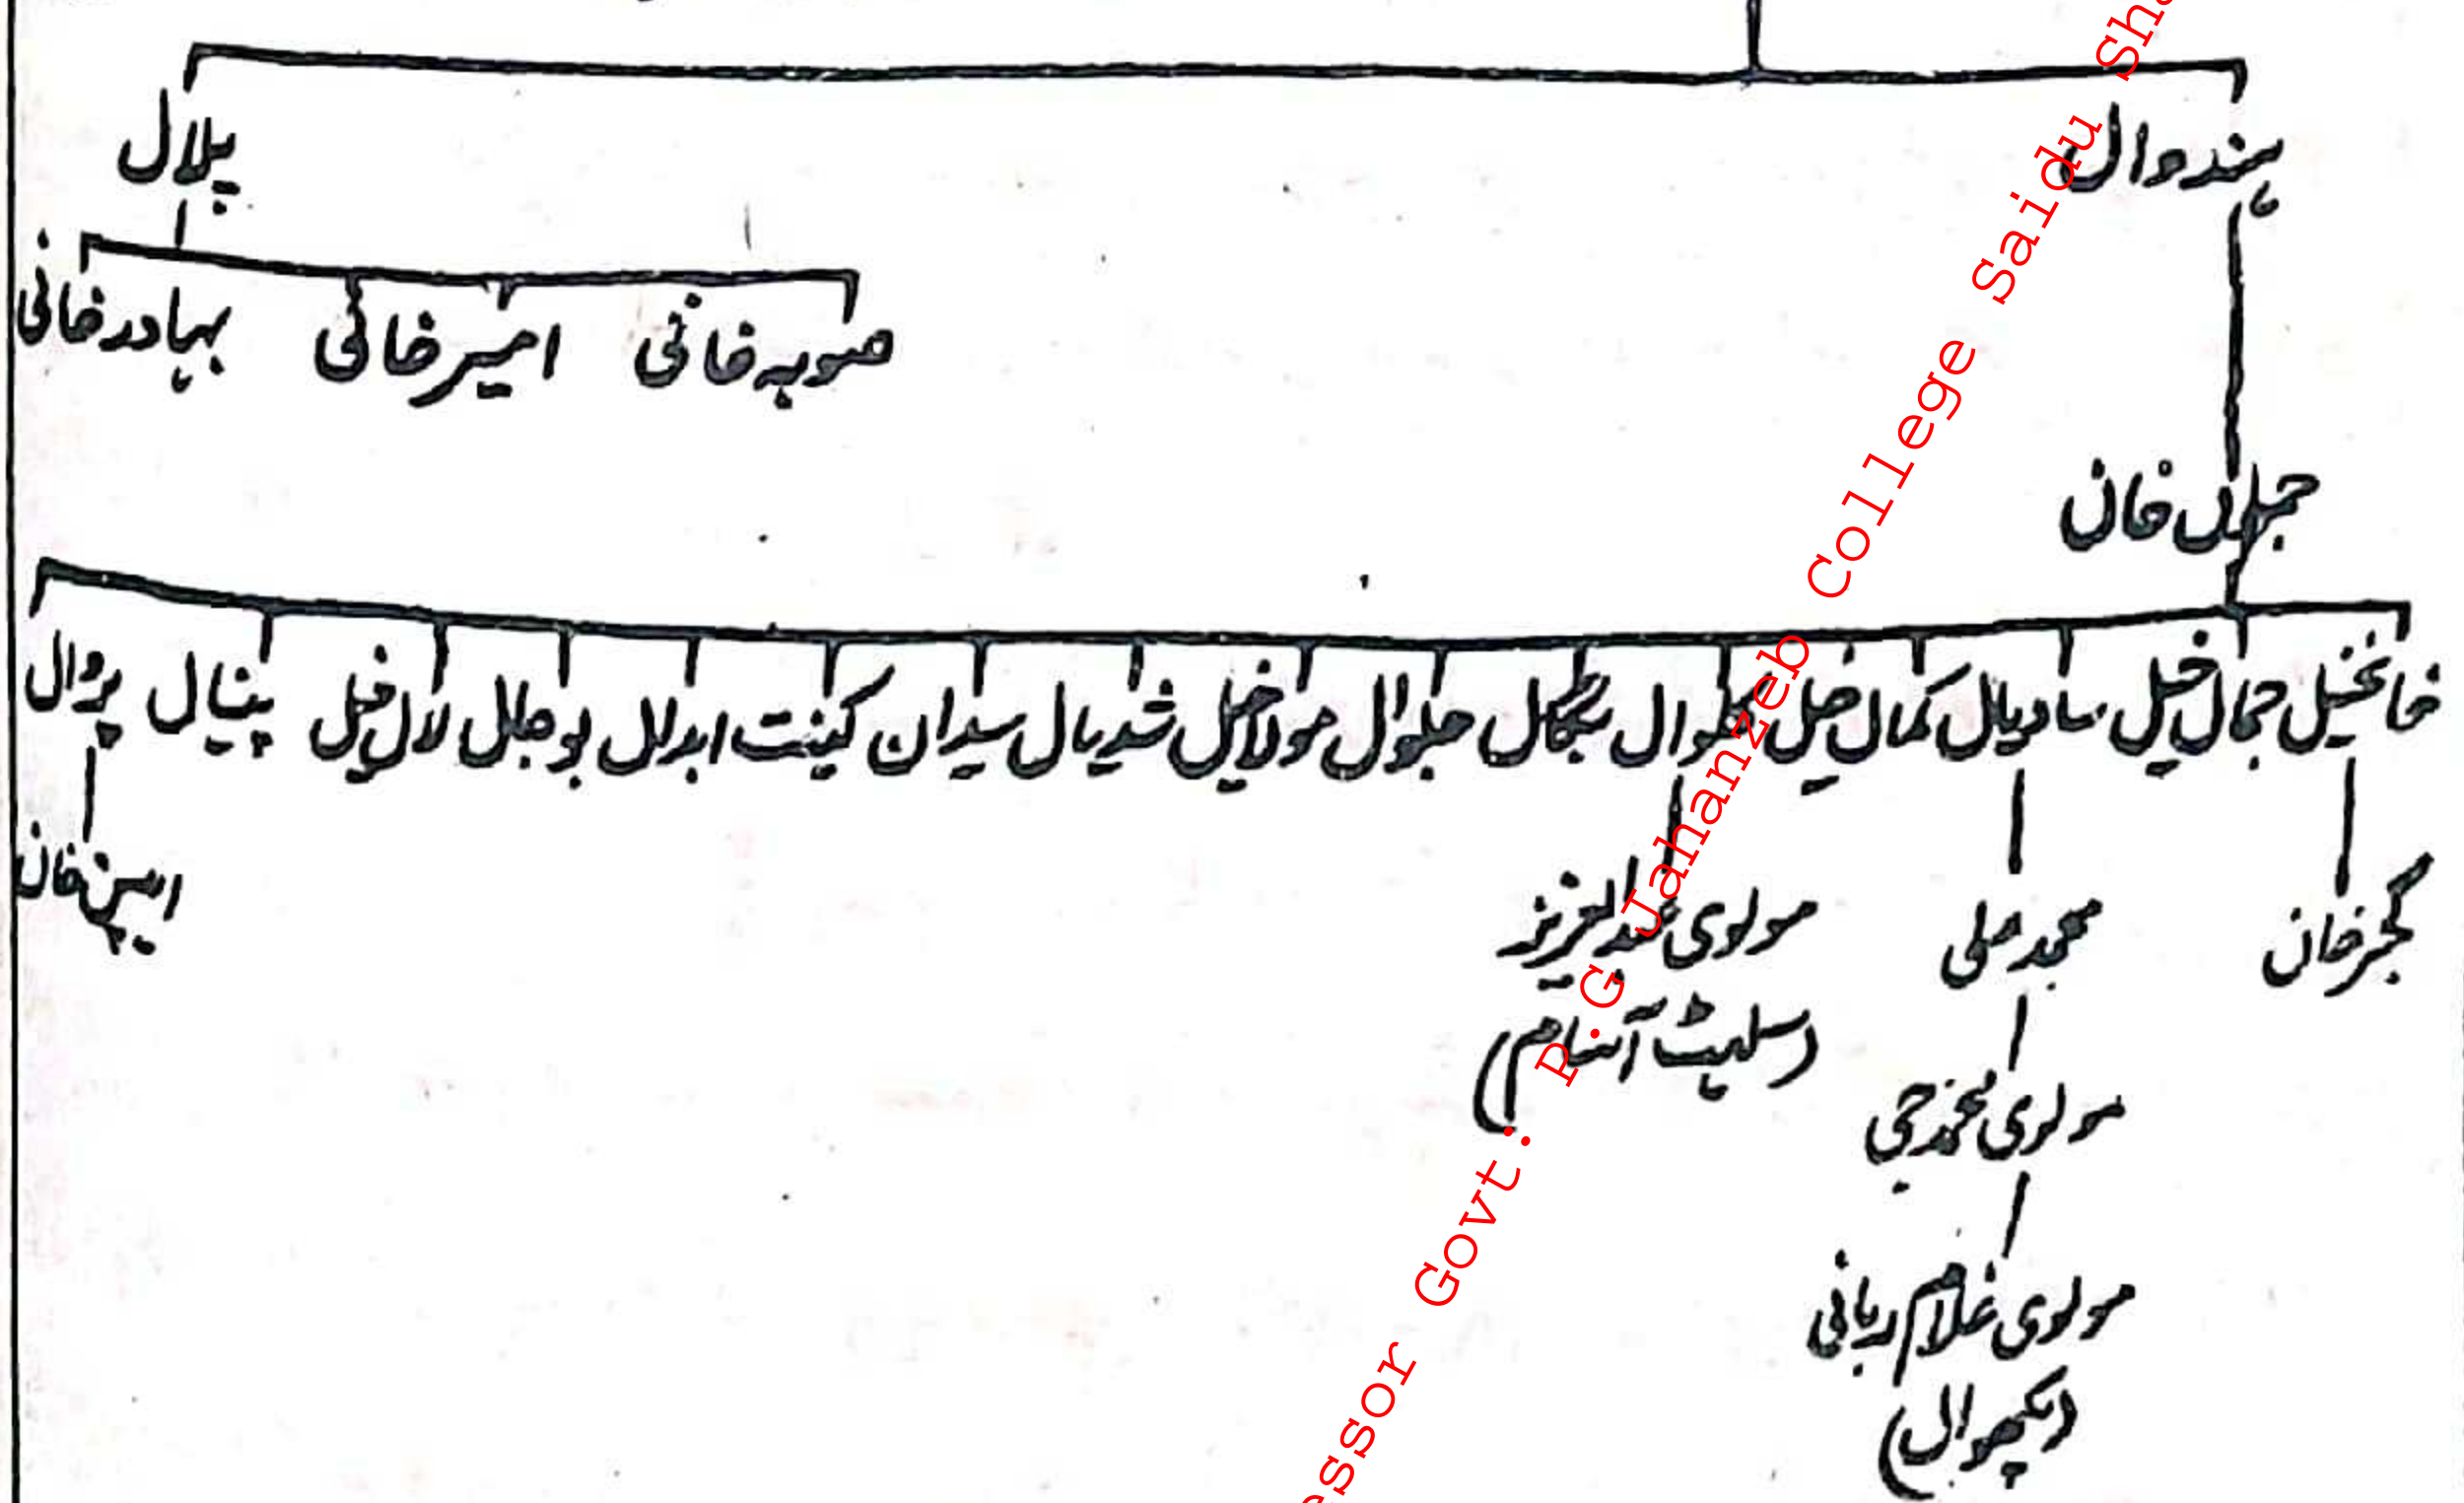 ہندوال پلال
صوبہ خانی امیر خانی بہادر خانی
خان
خانخیل جمال خیل سادیال کمال خیل جلوال مولا خیل شدیال سیدان کینت ابدلال لال خیل پنیال پڑوال
گجر خان محمد علی مولوی عبدالعزیز خان
(سلہٹ آسام)
مولوی محمد جی
مولوی غلام ربانی
ssor Govt: P.G Jahanzeb College Saidu Sha